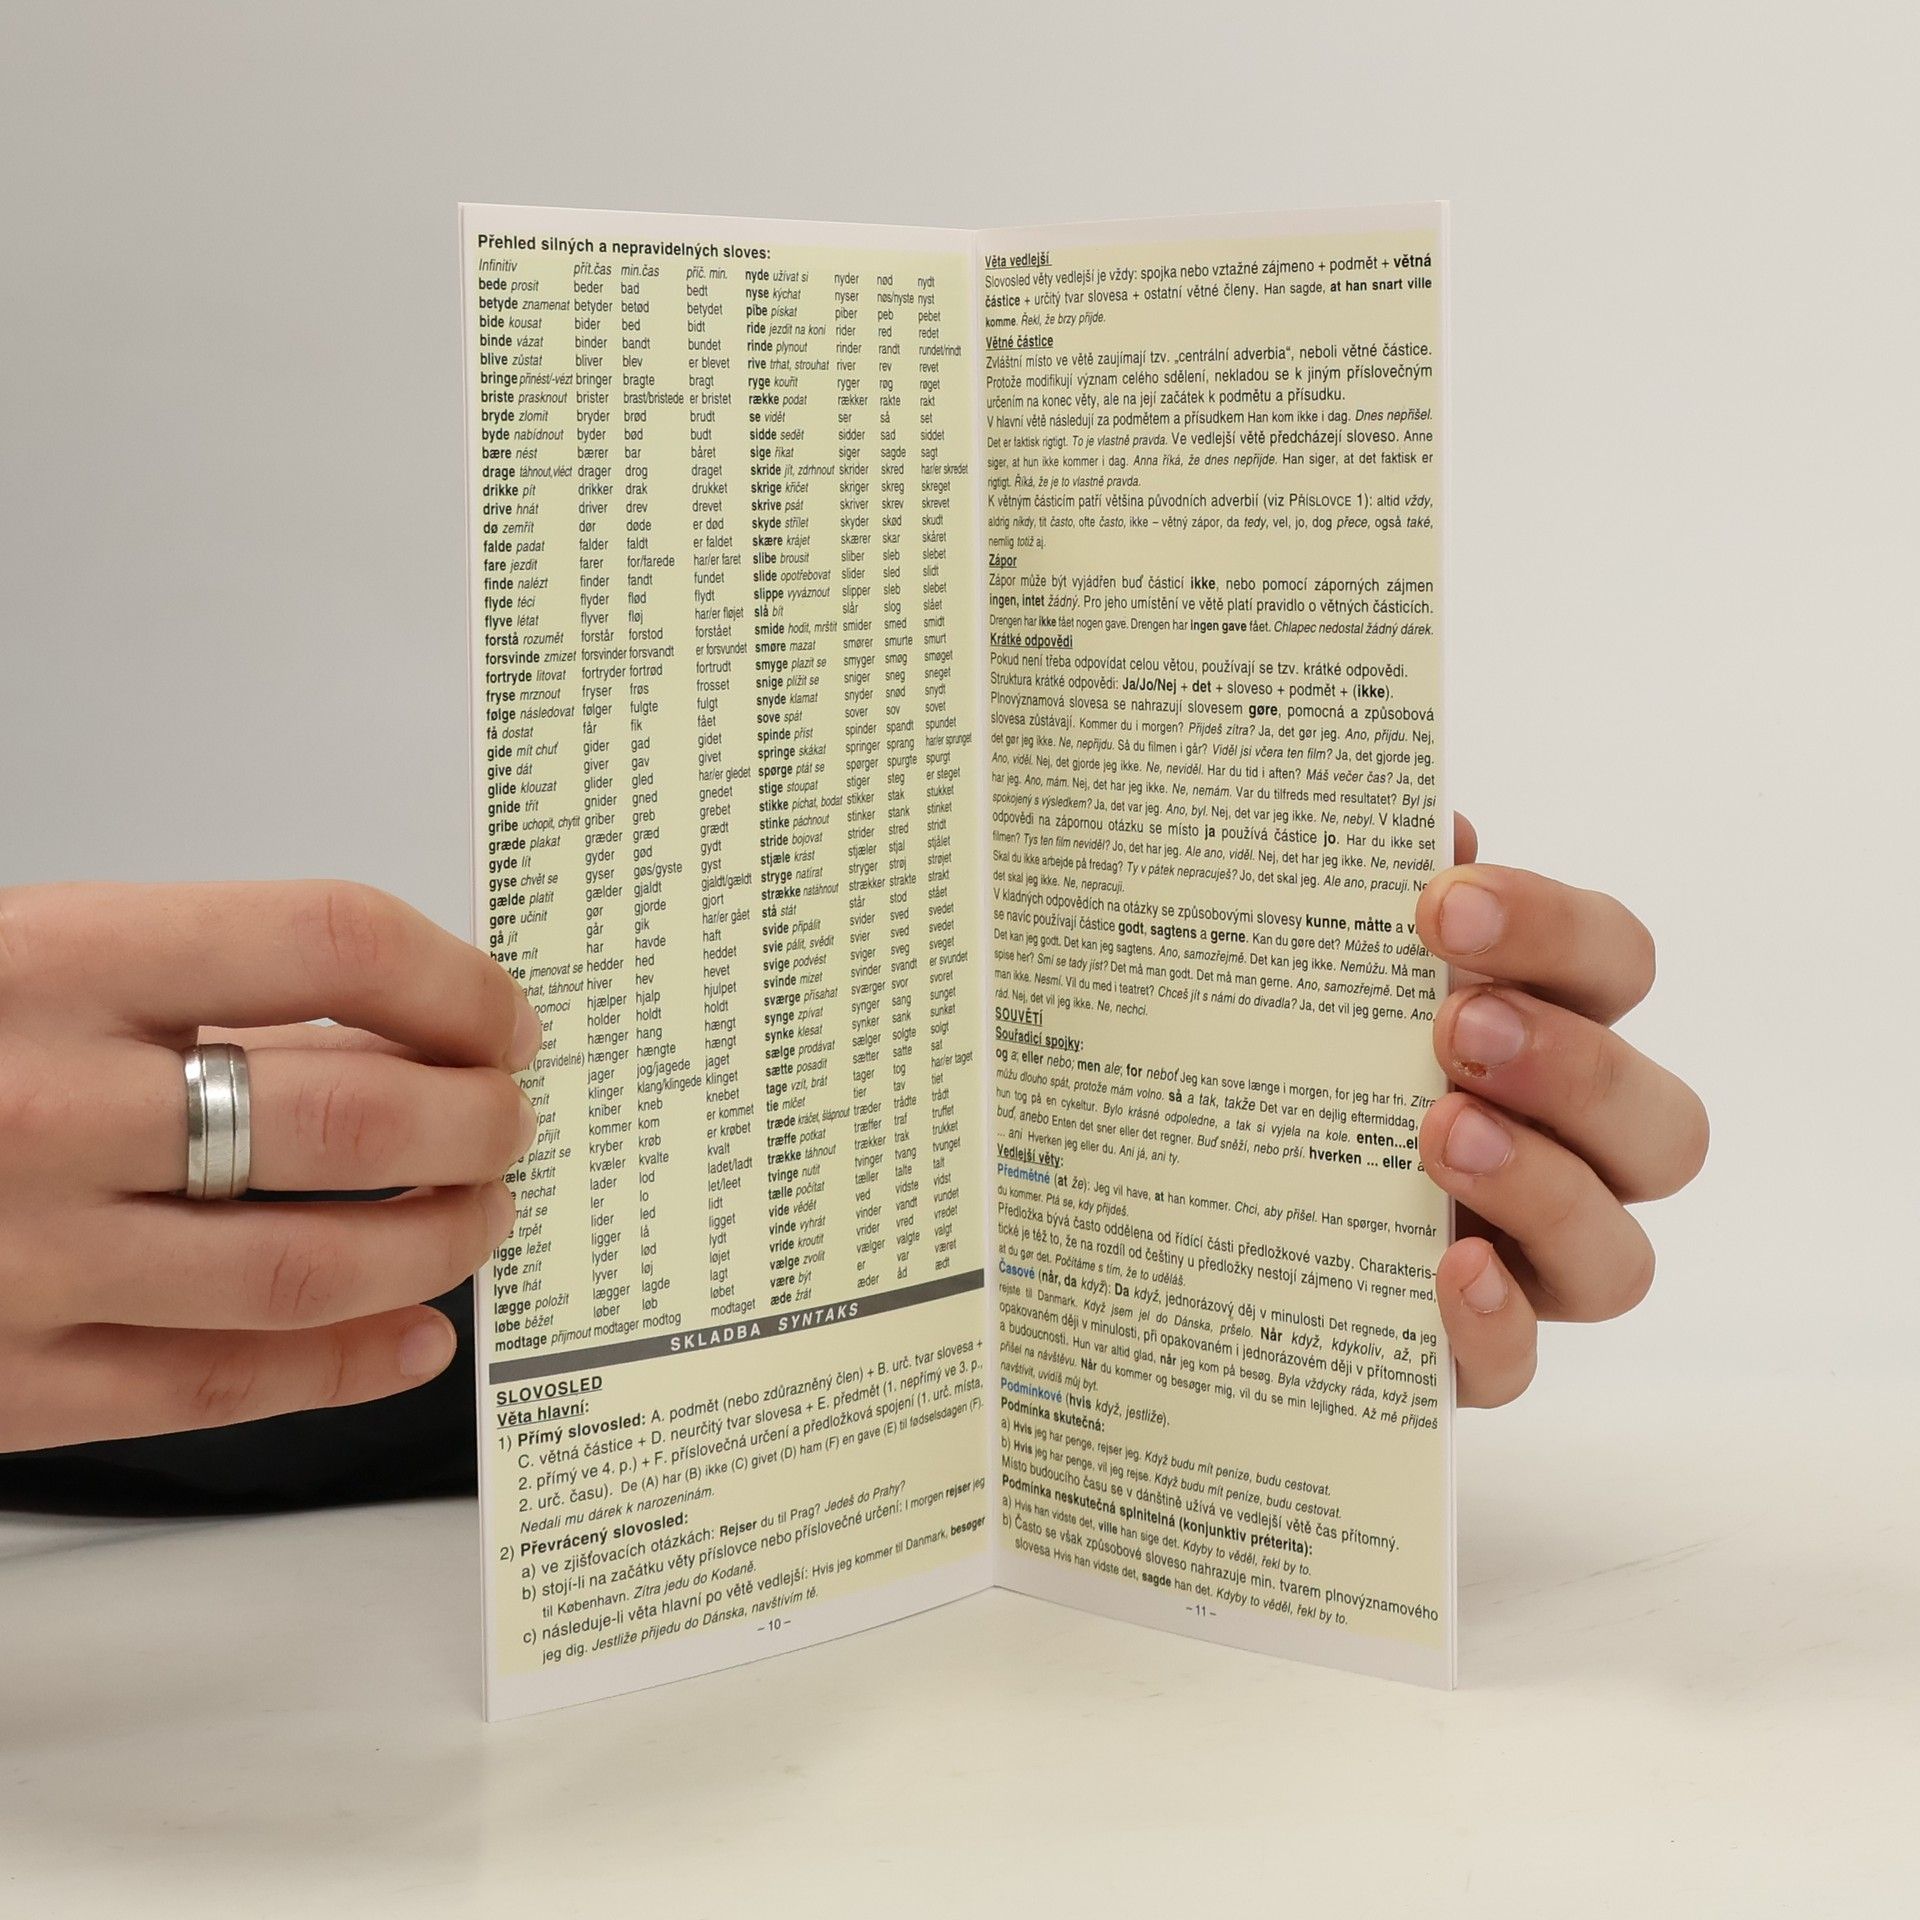 Přehled silných a nepravidelných sloves:
Infinitiv přít.čas min.čas příč. min.
bede prosit beder bad bedt
betyde znamenat betyder betød betydet
bide kousat bider bed bidt
binde vázat binder bandt bundet
blive zůstat bliver blev er blevet
bringe přinést/-vézt bringer bragte bragt
briste prasknout brister brast/bristede er bristet
bryde zlomit bryder brød brudt
byde nabídnout byder bød budt
bære nést bærer bar båret
drage táhnout,vléct drager drog draget
drikke pít drikker drak drukket
drive hnát driver drev drevet
dø zemřít dør døde er død
falde padat falder faldt er faldet
fare jezdit farer for/farede har/er faret
finde nalézt finder fandt fundet
flyde téci flyder flød flydt
flyve létat flyver fløj har/er fløjet
forstå rozumět forstår forstod forstået
forsvinde zmizet forsvinder forsvandt er forsvundet
fortryde litovat fortryder fortrød fortrudt
fryse mrznout fryser frøs frosset
følge následovat følger fulgte fulgt
få dostat får fik fået
gide mít chuť gider gad gidet
give dát giver gav givet
glide klouzat glider gled har/er gledet
gnide třít gnider gned gnedet
gribe uchopit, chytit griber greb grebet
græde plakat græder græd grædt
gyde lít gyder gød gydt
gyse chvět se gyser gøs/gyste gyst
gælde platit gælder gjaldt gjaldt/gældt
gøre učinit gør gjorde gjort
gå jít går gik har/er gået
have mít har havde haft
jmenovat se hedder hed heddet
táhnout hiver hev hevet
pomoci hjælper hjalp hjulpet
holder holdt holdt
hænger hang hængt
(pravidelné) hænger hængte hængt
honit jager jog/jagede jaget
znít klinger klang/klingede klinget
kniber kneb knebet
přijít kommer kom er kommet
plazit se kryber krøb er krøbet
škrtit kvæler kvalte kvalt
nechat lader lod ladet/ladt
ler lo let/leet
trpět lider led lidt
ligge ležet ligger lå ligget
lyde znít lyder lød lydt
lyve lhát lyver løj løjet
lægge položit lægger lagde lagt
løbe běžet løber løb løbet
modtage přijmout modtager modtog modtaget
nyde užívat si nyder nød nydt
nyse kýchat nyser nøs/nyste nyst
pibe pískat piber peb pebet
ride jezdit na koni rider red redet
rinde plynout rinder randt rundet/rindt
rive trhat, strouhat river rev revet
ryge kouřit ryger røg røget
række podat rækker rakte rakt
se vidět ser så set
sidde sedět sidder sad siddet
sige říkat siger sagde sagt
skride jít, zdrhnout skrider skred har/er skredet
skrige křičet skriger skreg skreget
skrive psát skriver skrev skrevet
skyde střílet skyder skød skudt
skære krájet skærer skar skåret
slibe brousit sliber sleb slebet
slide opotřebovat slider sled slidt
slippe vyváznout slipper sleb slebet
slå bít slår slog slået
smide hodit, mrštit smider smed smidt
smøre mazat smører smurte smurt
smyge plazit se smyger smøg smøget
snige plížit se sniger sneg sneget
snyde klamat snyder snød snydt
sove spát sover sov sovet
spinde příst spinder spandt spundet
springe skákat springer sprang har/er sprunget
spørge ptát se spørger spurgte spurgt
stige stoupat stiger steg er steget
stikke píchat, bodat stikker stak stukket
stinke páchnout stinker stank stinket
stride bojovat strider stred stridt
stjæle krást stjæler stjal stjålet
stryge natírat stryger strøj strøjet
strække natáhnout strækker strakte strakt
stå stát står stod stået
svide připálit svider sved svedet
svie pálit, svědit svier sved svedet
svige podvést sviger sveg sveget
svinde mizet svinder svandt er svundet
sværge přísahat sværger svor svoret
synge zpívat synger sang sunget
synke klesat synker sank sunket
sælge prodávat sælger solgte solgt
sætte posadit sætter satte sat
tage vzít, brát tager tog har/er taget
tie mlčet tier tav tiet
træde kráčet, šlápnout træder trådte trådt
træffe potkat træffer traf truffet
trække táhnout trækker trak trukket
tvinge nutit tvinger tvang tvunget
tælle počítat tæller talte talt
vide vědět ved vidste vidst
vinde vyhrát vinder vandt vundet
vride kroutit vrider vred vredet
vælge zvolit vælger valgte valgt
være být er var været
æde žrát æder åd ædt
SKLADBA SYNTAKS
SLOVOSLED
Věta hlavní:
1) Přímý slovosled: A. podmět (nebo zdůrazněný člen) + B. urč. tvar slovesa +
C. větná částice + D. neurčitý tvar slovesa + E. předmět (1. nepřímý ve 3. p.,
2. přímý ve 4. p.) + F. příslovečná určení a předložková spojení (1. urč. místa,
2. urč. času). De (A) har (B) ikke (C) givet (D) ham (F) en gave (E) til fødselsdagen (F).
Nedali mu dárek k narozeninám.
2) Převrácený slovosled:
a) ve zjišťovacích otázkách: Rejser du til Prag? Jedeš do Prahy?
b) stojí-li na začátku věty příslovce nebo příslovečné určení: I morgen rejser jeg
til København. Zítra jedu do Kodaně.
c) následuje-li věta hlavní po větě vedlejší: Hvis jeg kommer til Danmark, besøger
jeg dig. Jestliže přijedu do Dánska, navštívím tě.
– 10 –
Věta vedlejší
Slovosled věty vedlejší je vždy: spojka nebo vztažné zájmeno + podmět + větná
částice + určitý tvar slovesa + ostatní větné členy. Han sagde, at han snart ville
komme. Řekl, že brzy přijde.
Větné částice
Zvláštní místo ve větě zaujímají tzv. „centrální adverbia“, neboli větné částice.
Protože modifikují význam celého sdělení, nekladou se k jiným příslovečným
určením na konec věty, ale na její začátek k podmětu a přísudku.
V hlavní větě následují za podmětem a přísudkem Han kom ikke i dag. Dnes nepřišel.
Det er faktisk rigtigt. To je vlastně pravda. Ve vedlejší větě předcházejí sloveso. Anne
siger, at hun ikke kommer i dag. Anna říká, že dnes nepřijde. Han siger, at det faktisk er
rigtigt. Říká, že je to vlastně pravda.
K větným částicím patří většina původních adverbií (viz PŘÍSLOVCE 1): altid vždy,
aldrig nikdy, tit často, ofte často, ikke – větný zápor, da tedy, vel, jo, dog přece, også také,
nemlig totiž aj.
Zápor
Zápor může být vyjádřen buď částicí ikke, nebo pomocí záporných zájmen
ingen, intet žádný. Pro jeho umístění ve větě platí pravidlo o větných částicích.
Drengen har ikke fået nogen gave. Drengen har ingen gave fået. Chlapec nedostal žádný dárek.
Krátké odpovědi
Pokud není třeba odpovídat celou větou, používají se tzv. krátké odpovědi.
Struktura krátké odpovědi: Ja/Jo/Nej + det + sloveso + podmět + (ikke).
Plnovýznamová slovesa se nahrazují slovesem gøre, pomocná a způsobová
slovesa zůstávají. Kommer du i morgen? Přijdeš zítra? Ja, det gør jeg. Ano, přijdu. Nej,
det gør jeg ikke. Ne, nepřijdu. Så du filmen i går? Viděl jsi včera ten film? Ja, det gjorde jeg.
Ano, viděl. Nej, det gjorde jeg ikke. Ne, neviděl. Har du tid i aften? Máš večer čas? Ja, det
har jeg. Ano, mám. Nej, det har jeg ikke. Ne, nemám. Var du tilfreds med resultatet? Byl jsi
spokojený s výsledkem? Ja, det var jeg. Ano, byl. Nej, det var jeg ikke. Ne, nebyl. V kladné
odpovědi na zápornou otázku se místo ja používá částice jo. Har du ikke set
filmen? Tys ten film neviděl? Jo, det har jeg. Ale ano, viděl. Nej, det har jeg ikke. Ne, neviděl.
Skal du ikke arbejde på fredag? Ty v pátek nepracuješ? Jo, det skal jeg. Ale ano, pracuji.
det skal jeg ikke. Ne, nepracuji.
V kladných odpovědích na otázky se způsobovými slovesy kunne, måtte a
se navíc používají částice godt, sagtens a gerne. Kan du gøre det? Můžeš to udělat?
Det kan jeg godt. Det kan jeg sagtens. Ano, samozřejmě. Det kan jeg ikke. Nemůžu. Må man
spise her? Smí se tady jíst? Det må man godt. Det må man gerne. Ano, samozřejmě. Det må
man ikke. Nesmí. Vil du med i teatret? Chceš jít s námi do divadla? Ja, det vil jeg gerne. Ano,
rád. Nej, det vil jeg ikke. Ne, nechci.
SOUVĚTÍ
Souřadicí spojky:
og a; eller nebo; men ale; for neboť Jeg kan sove længe i morgen, for jeg har fri. Zítra
můžu dlouho spát, protože mám volno. så a tak, takže Det var en dejlig eftermiddag,
hun tog på en cykeltur. Bylo krásné odpoledne, a tak si vyjela na kole. enten...
buď, anebo Enten det sner eller det regner. Buď sněží, nebo prší. hverken ... eller
... ani Hverken jeg eller du. Ani já, ani ty.
Vedlejší věty:
Předmětné (at že): Jeg vil have, at han kommer. Chci, aby přišel. Han spørger, hvornår
du kommer. Ptá se, kdy přijdeš.
Předložka bývá často oddělena od řídící části předložkové vazby. Charakteris-
tické je též to, že na rozdíl od češtiny u předložky nestojí zájmeno Vi regner med,
at du gør det. Počítáme s tím, že to uděláš.
Časové (når, da když): Da když, jednorázový děj v minulosti Det regnede, da jeg
rejste til Danmark. Když jsem jel do Dánska, pršelo. Når když, kdykoliv, až, při
opakovaném ději v minulosti, při opakovaném i jednorázovém ději v přítomnosti
a budoucnosti. Hun var altid glad, når jeg kom på besøg. Byla vždycky ráda, když jsem
přišel na návštěvu. Når du kommer og besøger mig, vil du se min lejlighed. Až mě přijdeš
navštívit, uvidíš můj byt.
Podmínkové (hvis když, jestliže).
Podmínka skutečná:
a) Hvis jeg har penge, rejser jeg. Když budu mít peníze, budu cestovat.
b) Hvis jeg har penge, vil jeg rejse. Když budu mít peníze, budu cestovat.
Místo budoucího času se v dánštině užívá ve vedlejší větě čas přítomný.
Podmínka neskutečná splnitelná (konjunktiv préterita):
a) Hvis han vidste det, ville han sige det. Kdyby to věděl, řekl by to.
b) Často se však způsobové sloveso nahrazuje min. tvarem plnovýznamového
slovesa Hvis han vidste det, sagde han det. Kdyby to věděl, řekl by to.
– 11 –